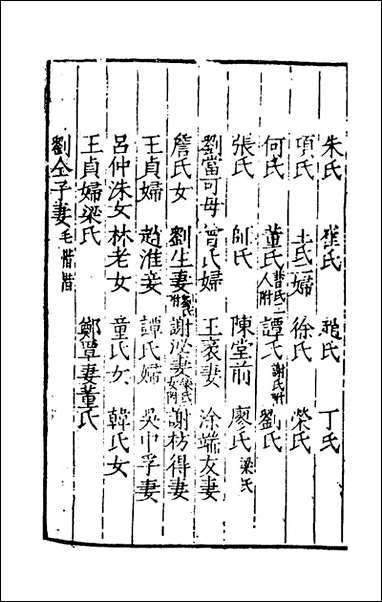 朱氏 崔氏 趙氏 丁氏
項氏 王氏二婦 徐氏 榮氏
何氏 董氏曹氏二人附 譚氏謝氏附 劉氏
張氏 師氏 陳堂前 廖氏梁氏
劉當可母 曾氏婦 王袤妻 涂端友妻
詹氏女 劉生妻 謝泌妻樂氏女附 謝枋得妻
王貞婦 趙淮妾 譚氏婦 吳中孚妻
呂仲洙女 林老女 童氏女 韓氏女
王貞婦梁氏 鄭覃妻董氏
劉仝子妻毛惜惜